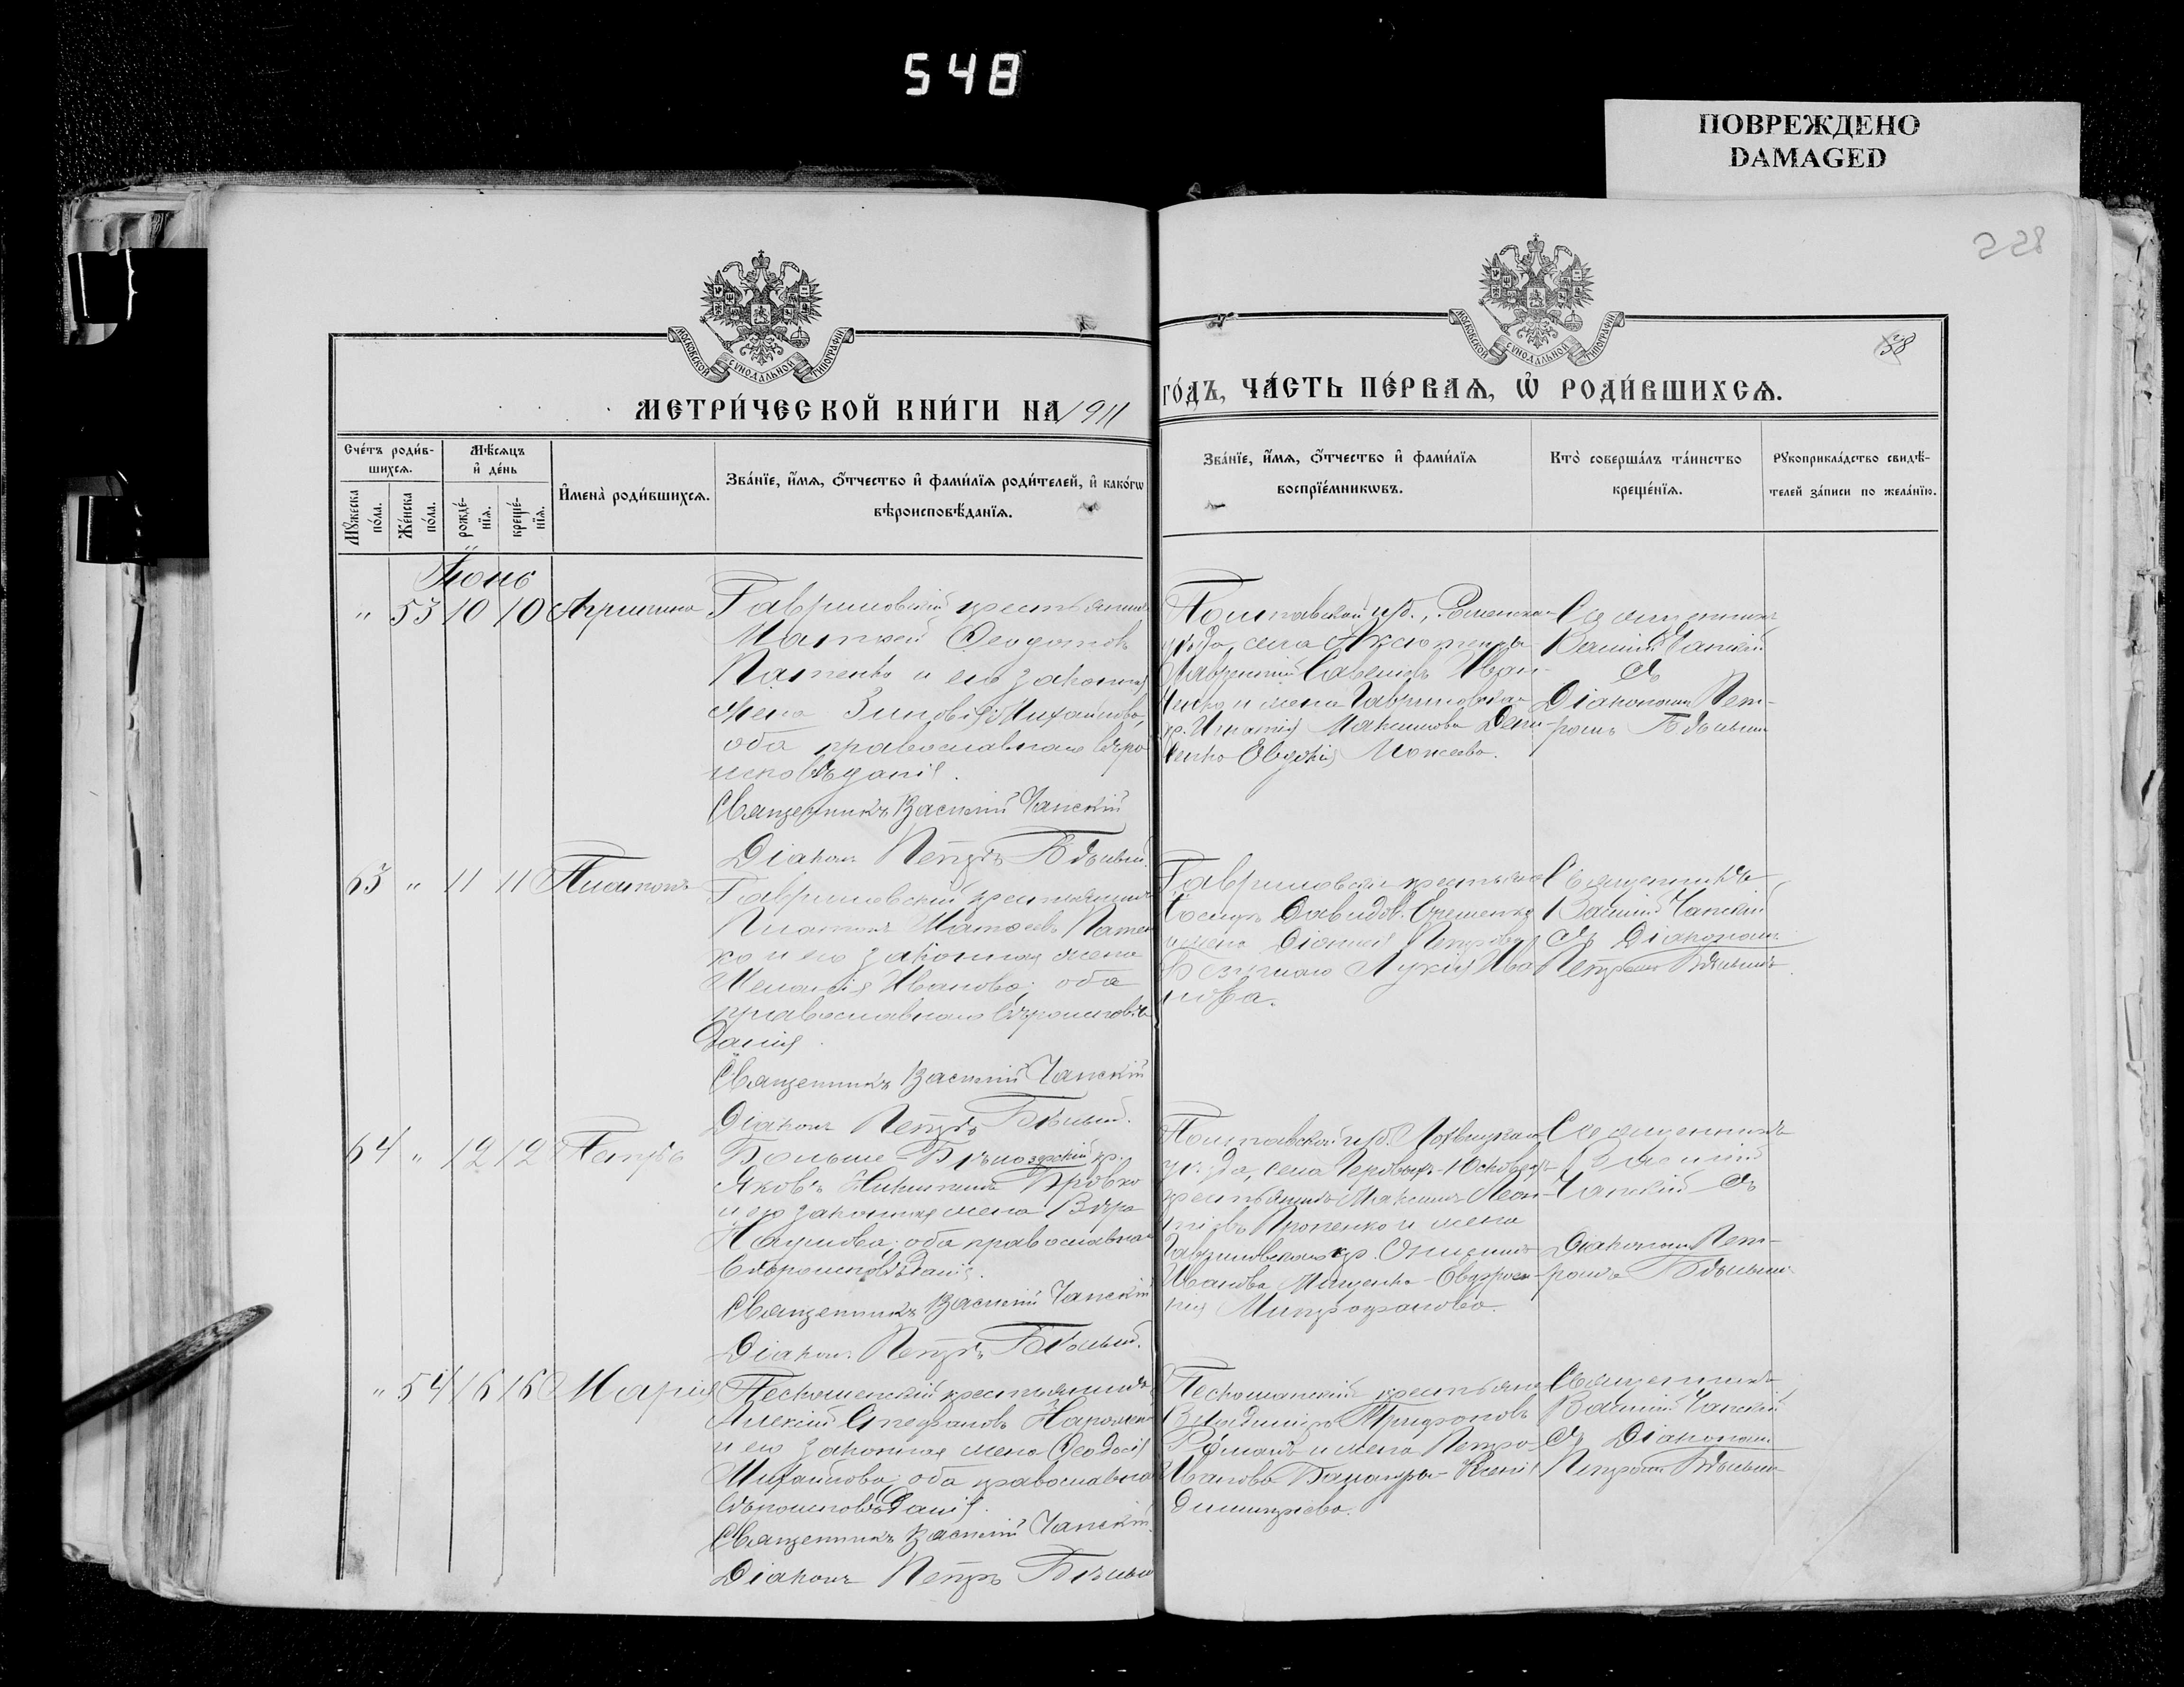 548
ПОВРЕЖДЕНО
DAMAGED
228
38
МОСКОВСКОЙ СѴНОДАЛЬНОЙ ТИПОГРАФІИ
МОСКОВСКОЙ СѴНОДАЛЬНОЙ ТИПОГРАФІИ
МЕТРИ́ЧЕСКОЙ КНИ́ГИ НА 1911
ГО́ДЪ, ЧА́СТЬ ПЕ́РВАѦ, Ѡ҆ РОДИ́ВШИХСѦ.
Сче́тъ роди́в-
шихсѧ.
Мꙋ́жеска
по́ла.
Же́нска
по́ла.
Мѣ́сѧцъ
и҆ де́нь
рожде́-
нїѧ.
креще́-
нїѧ.
И҆мена̀ роди́вшихсѧ.
Зва́нїе, и҆́мѧ, ѻ҆́тчество и҆ фами́лїѧ роди́телей, и҆ како́гѡ
вѣроисповѣ́данїѧ.
Зва́нїе, и҆́мѧ, ѻ҆́тчество и҆ фами́лїѧ
воспрїе́мникѡвъ.
Кто̀ соверша́лъ та́инство
креще́нїѧ.
Рꙋкоприкла́дство свидѣ́-
телей за́писи по жела́нїю.
Іюнь
" 53 10 10 Агрипина
Гавриловскій крестьянинъ
Матѳей Ѳеодотовъ
Патенко и его законная
жена Зиновія Михайлова,
оба православнаго вѣро
исповѣданія.
Священникъ Василій Чапскій
Діаконъ Петръ Бѣлый.
Полтавской губ., Роменскаго
уѣзда, села
Лаврентій Савельевъ Иван-
ченко и жена Гавриловскаго
кр. Игнатія Максимова
Евдокія Моисеева.
Священникъ
Василій Чапскій
съ
Діакономъ Пет-
ромъ Бѣлымъ
63 " 11 11 Платонъ
Гавриловскій крестьянинъ
Платонъ Матѳеевъ Патен
ко и его законная жена
Меланія Иванова; оба
православнаго вѣроисповѣ
данія.
Священникъ Василій Чапскій
Діаконъ Петръ Бѣлый.
Гавриловскіе крестьяне
Іосифъ Давидовъ
и жена Діонисія Петрова
Лукія Ива
нова.
Священникъ
Василій Чапскій
съ Діакономъ
Петромъ Бѣлымъ
64 " 12 12 Петръ
Больше-Бѣлозерскій кр.
Яковъ Никитинъ Бровко
и его законная жена Вѣра
Наумова; оба православнаго
вѣроисповѣданія.
Священникъ Василій Чапскій
Діаконъ Петръ Бѣлый.
Полтавской губ. Лохвицкаго
уѣзда, села
крестьянинъ Максимъ Леон-
тіевъ Пропенко и жена
Гавриловскаго кр.
Иванова Мищенко Евфроси-
нія Митрофанова.
Священникъ
Василій
Чапскій съ
Діакономъ Пет-
ромъ Бѣлымъ
" 54 16 16 Марія
Алексій Стефановъ
и его законная жена Ѳеодосія
Михайлова; оба православнаго
вѣроисповѣданія.
Священникъ Василій Чапскій.
Діаконъ Петръ Бѣлый
крестьяне
Владиміръ Трифоновъ
и жена Петра
Иванова Ксенія
Димитріева.
Священникъ
Василій Чапскій
съ Діакономъ
Петромъ Бѣлымъ